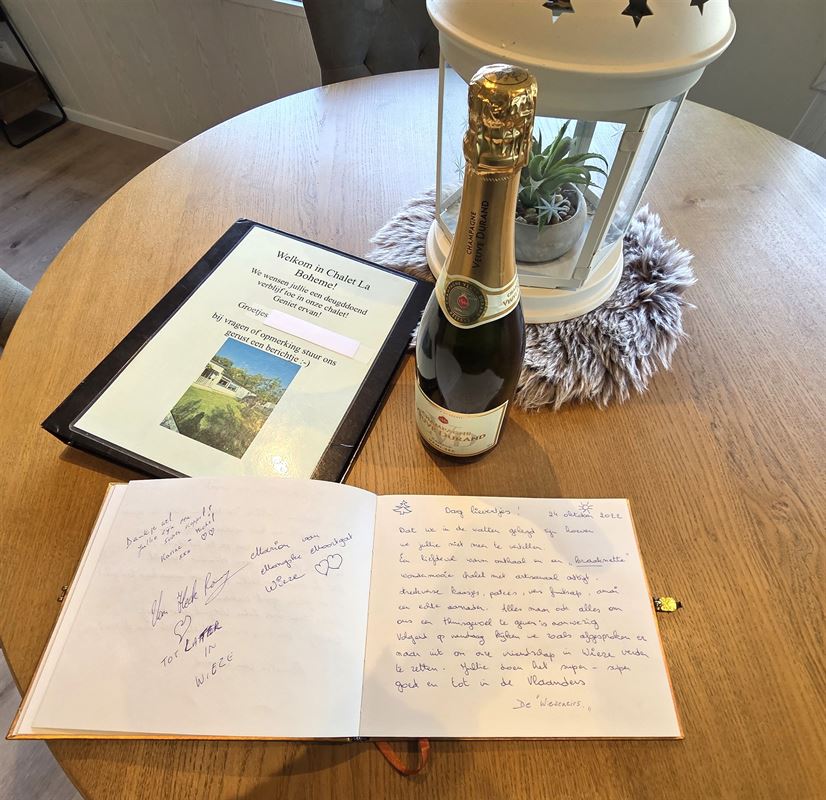 Welkom in Chalet La
Boheme!
We wensen jullie een deugddoend
verblijf toe in onze chalet!
Geniet ervan!
Groetjes
bij vragen of opmerking stuur ons
gerust een berichtje ;-)
CHAMPAGNE
VEUVE DURAND
CHAMPAGNE
VEUVE DURAND
Dankje wel
Jullie zijn
xxx
Van Hecke
Marian van
Wieze
TOT LATER
IN
WIEZE
Dag lieverdjes!
24 oktober 2022
Dat we in de watten gelegd zijn hoeven
we jullie niet meer te vertellen.
En liefdevol warm onthaal in een "kraaknette"
wondermooie chalet met artisanaal ontbijt.
kaasjes, patees, vers fruitsap,
en echte aanraders. Alles maar ook alles om
ons een thuisgevoel te geven is aanwezig
Volgend op vandaag kijken we zoals afgesproken er
naar uit om onze vriendschap in Wieze verder
te zetten. Jullie doen het super-super
goed en tot in de Vlaanders.
De "Wiezeneirs"